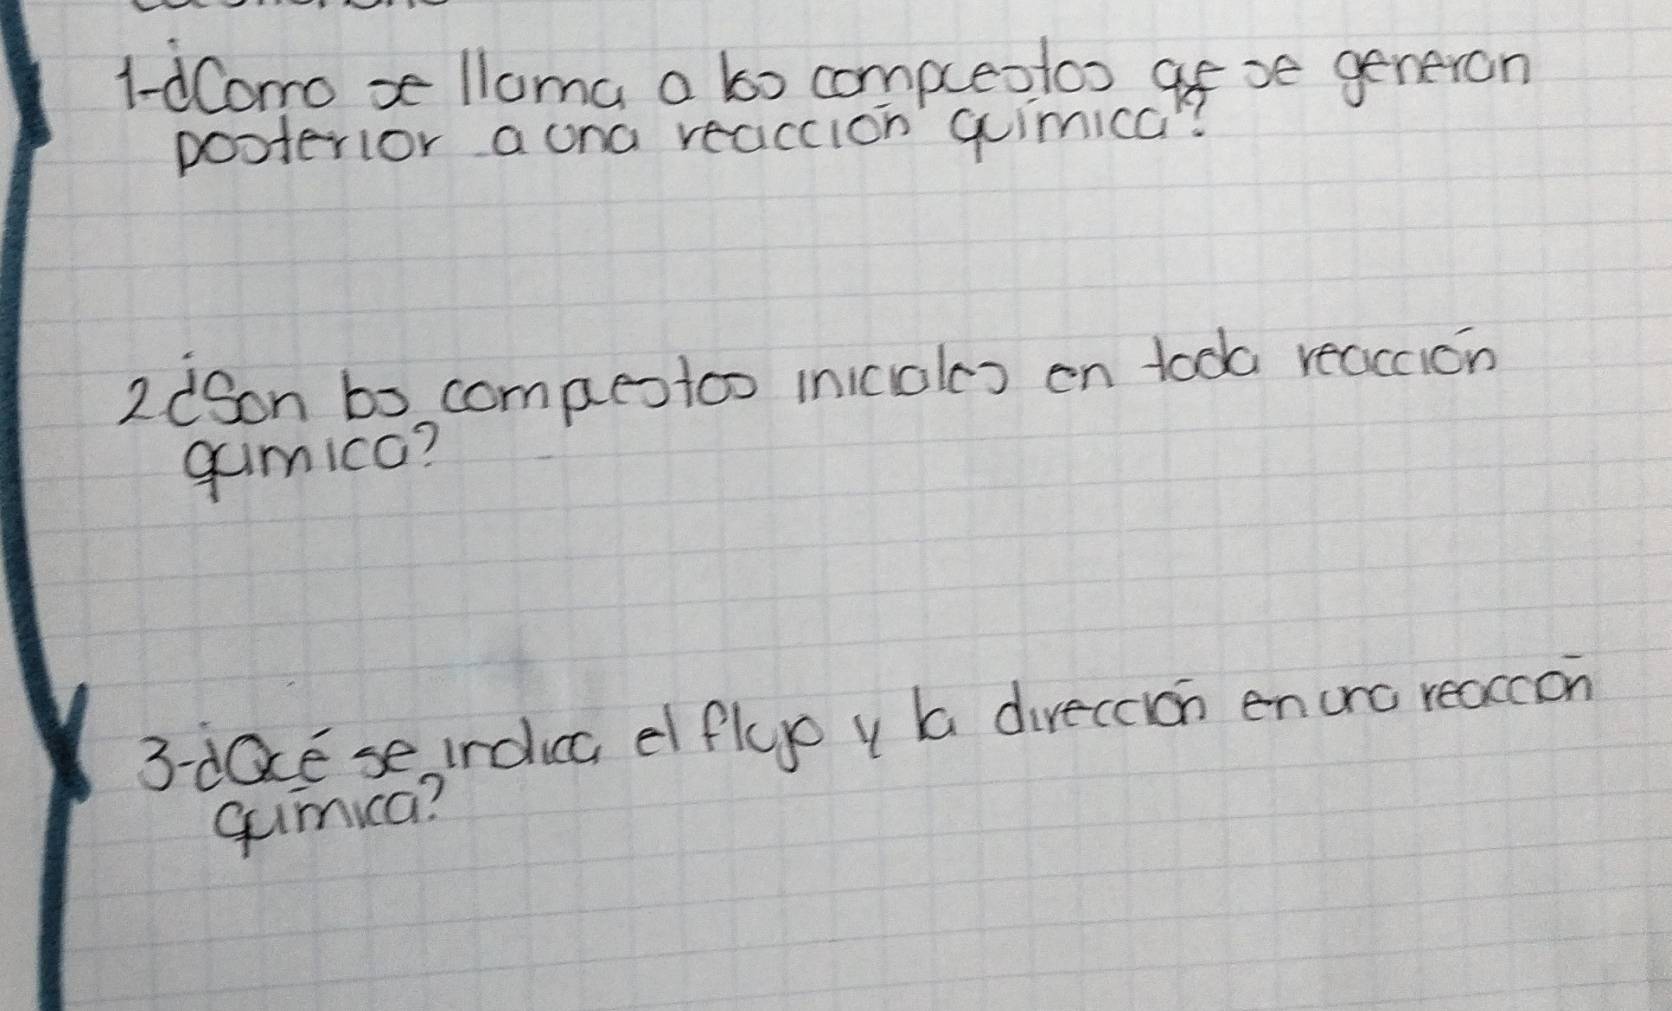 1-¿Como se llama a los compuestos qe se generan
posterior a una reacción química?
2 ¿Son los compuestos iniciales en toda reacción
química?
3-¿Qué se indica el flujo y la dirección en una reacción
química?